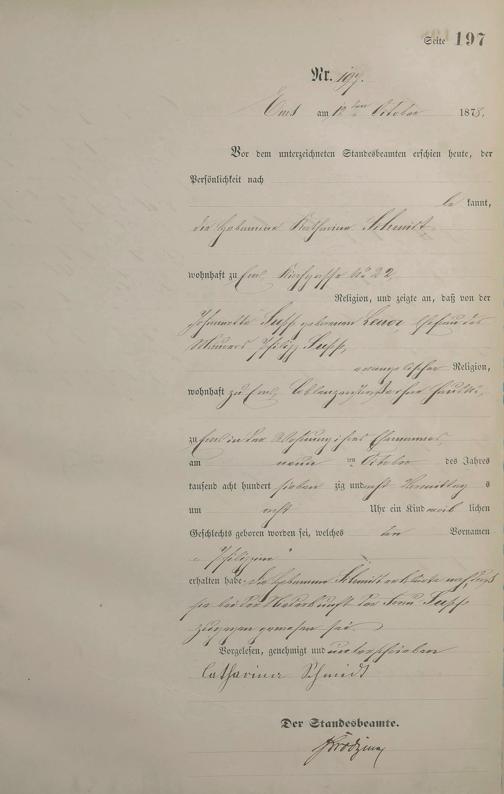 Seite 197
Nr. 197.
Ems am 12ten October 1878.
Vor dem unterzeichneten Standesbeamten erschien heute, der
Persönlichkeit nach
be kannt,
die Hebamme Katharina Schmidt,
wohnhaft zu Ems, Kirchgasse No 22
Religion, und zeigte an, daß von der
Süss geborenen Ehefrau des
Philipp Süss,
evangelischer Religion,
wohnhaft zu Ems, Coblenzerstrasse
zu Ems in der Wohnung ihres Ehemannes,
am neun ten October des Jahres
tausend acht hundert sieben zig und acht Vormittag s
um acht Uhr ein Kind weib lichen
Geschlechts geboren worden sei, welches den Vornamen
"Philippine"
erhalten habe. Die Hebamme Schmidt erklärte noch, daß
sie bei der Niederkunft der Frau Süss
zugegen gewesen sei.
Vorgelesen, genehmigt und unterschrieben
Catharina Schmidt
Der Standesbeamte.